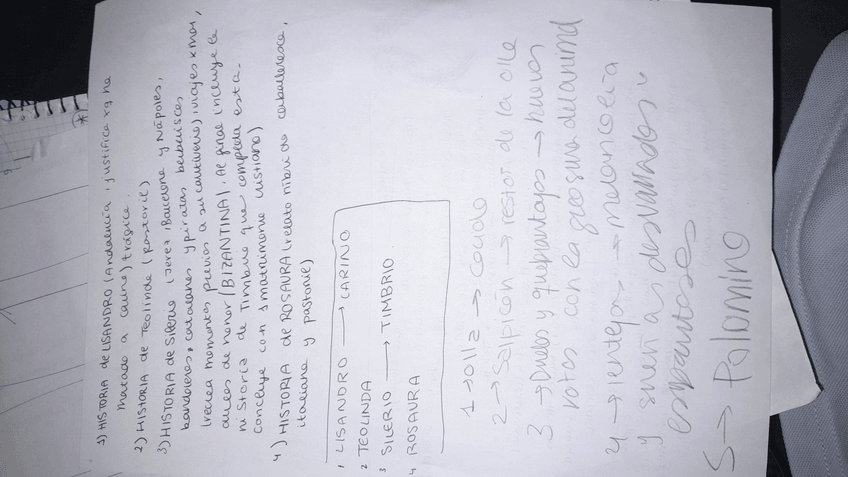 1) HISTORIA de LISANDRO (Andalucía, justifica xq ha
matado a carino) trágica.
2) HISTORIA de Teolinda (pastoril)
3) HISTORIA de Silerio (Jerez, Barcelona y Nápoles,
bandoleros catalanes y piratas berberiscos
(recrea momentos previos a su cautiverio), viajes x mar,
duelos de honor (BIZANTINA). Al final incluye la
historia de Timbrio que completa esta.
Concluye con 1 matrimonio cristiano)
4) HISTORIA de ROSAURA (relato híbrido caballeresca,
italiana y pastoril)
1 LISANDRO → CARINO
2 TEOLINDA
3 SILERIO → TIMBRIO
4 ROSAURA
1 → Olla → Cocido
2 → Salpicón → restos de la olla
3 → Duelos y quebrantos → huevos
rotos con la grosura del animal
4 → lentejas → melancolía
y sueños desvariados y
espantosos
5 → Palomino